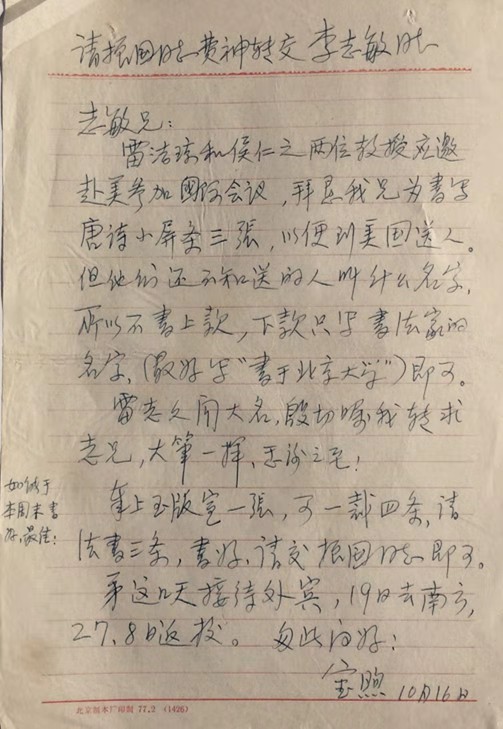 请振国同志费神转交 李志敏同志
志敏兄：
雷洁琼和侯仁之两位教授应邀
赴美参加國际会议，拜恳我兄为書写
唐诗小屏条三張，以便到美国送人。
但他们还不知送的人叫什么名字，
所以不書上款，下款只写書法家的
名字，(最好写"書于北京大学")即可。
雷老久闻大名，殷切嘱我转求
志兄，大筆一揮，感谢之至！
奉上玉版宣一張，可一裁四条，请
法書三条，書好，请交振国同志即可。
如能于
本周末書
好，最佳；
弟这几天接待外宾，19日去南京，
27、8日返校。匆此问好！
宝煦 10月16日
北京制本厂印制 77.2 (1426)